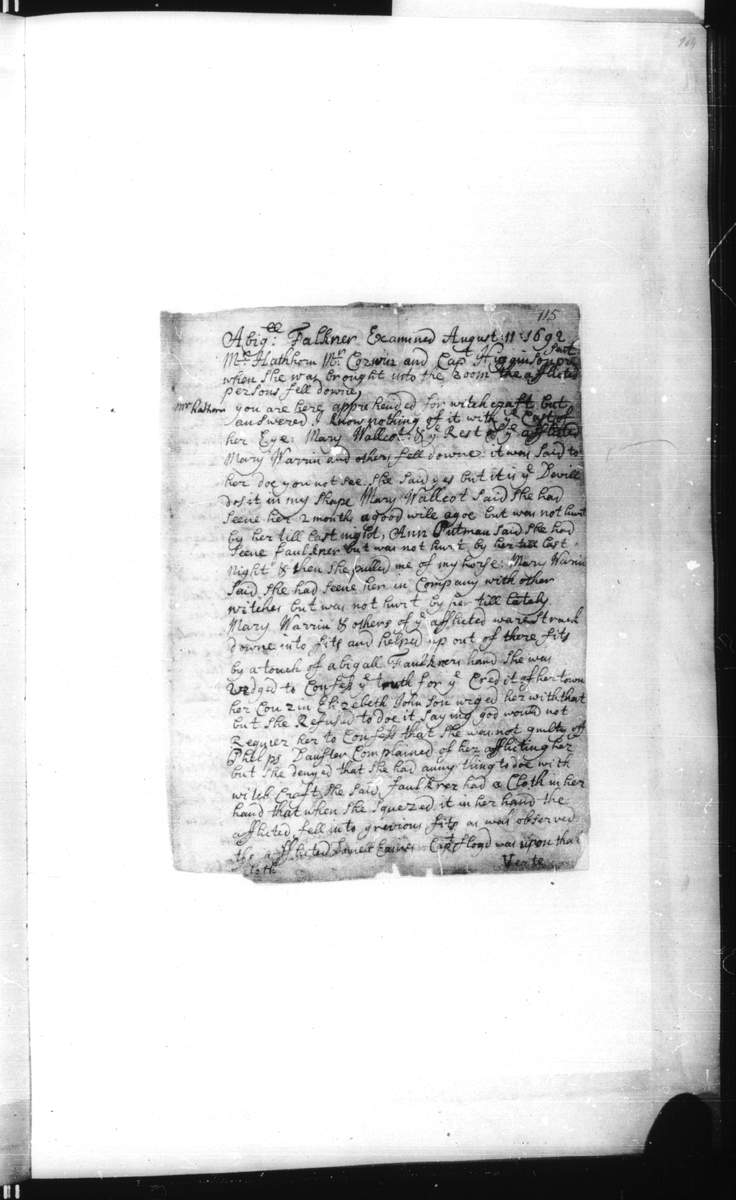 169
115
Abigell: Falkner Examined August: 11: 1692
Mr Hathorn Mr Corwin and Capt Higginson
when she was brought into the room the afflicted
persons fell downe
mr Hathorn you are here apprihended for witchcraft but
answered I know nothing of it with ye Cast of
her Eye: Mary Wallcot & ye Rest of ye afflicted
Mary Warrin and others fell downe: it was said to
her doe you not see: she said yes but it is ye Devill
dos it in my shape Mary Wallcot said she had
seene her 2 months a good wile agoe but was not hurt
by her till last night, Ann Putman said she had
seene faulkner but was not hurt by her till last
night & then she pulled me of my horse: Mary Warrin
said she had seene her in Company with other
witches but was not hurt by her till lately
Mary Warrin & others of ye afflicted ware struck
downe into fits and helped up out of there fits
by a touch of abigall Faulkners hand she was
urdged to Confess ye truth for ye Credit of hertown
her Couzin Elizebeth Johnson urged her with that
but she Refused to doe it saying god would not
Requier her to Confess that she was not guilte of
Phelps Daughter Complained of her afflicting her
but she denyed that she had anny thing to doe with
witch Craft she said faulkner had a Cloth in her
hand that when she squezed it in her hand the
afflicted fell into grevious fits as was observed
the afflicted Capt floyd was upon that
Cloth Verte